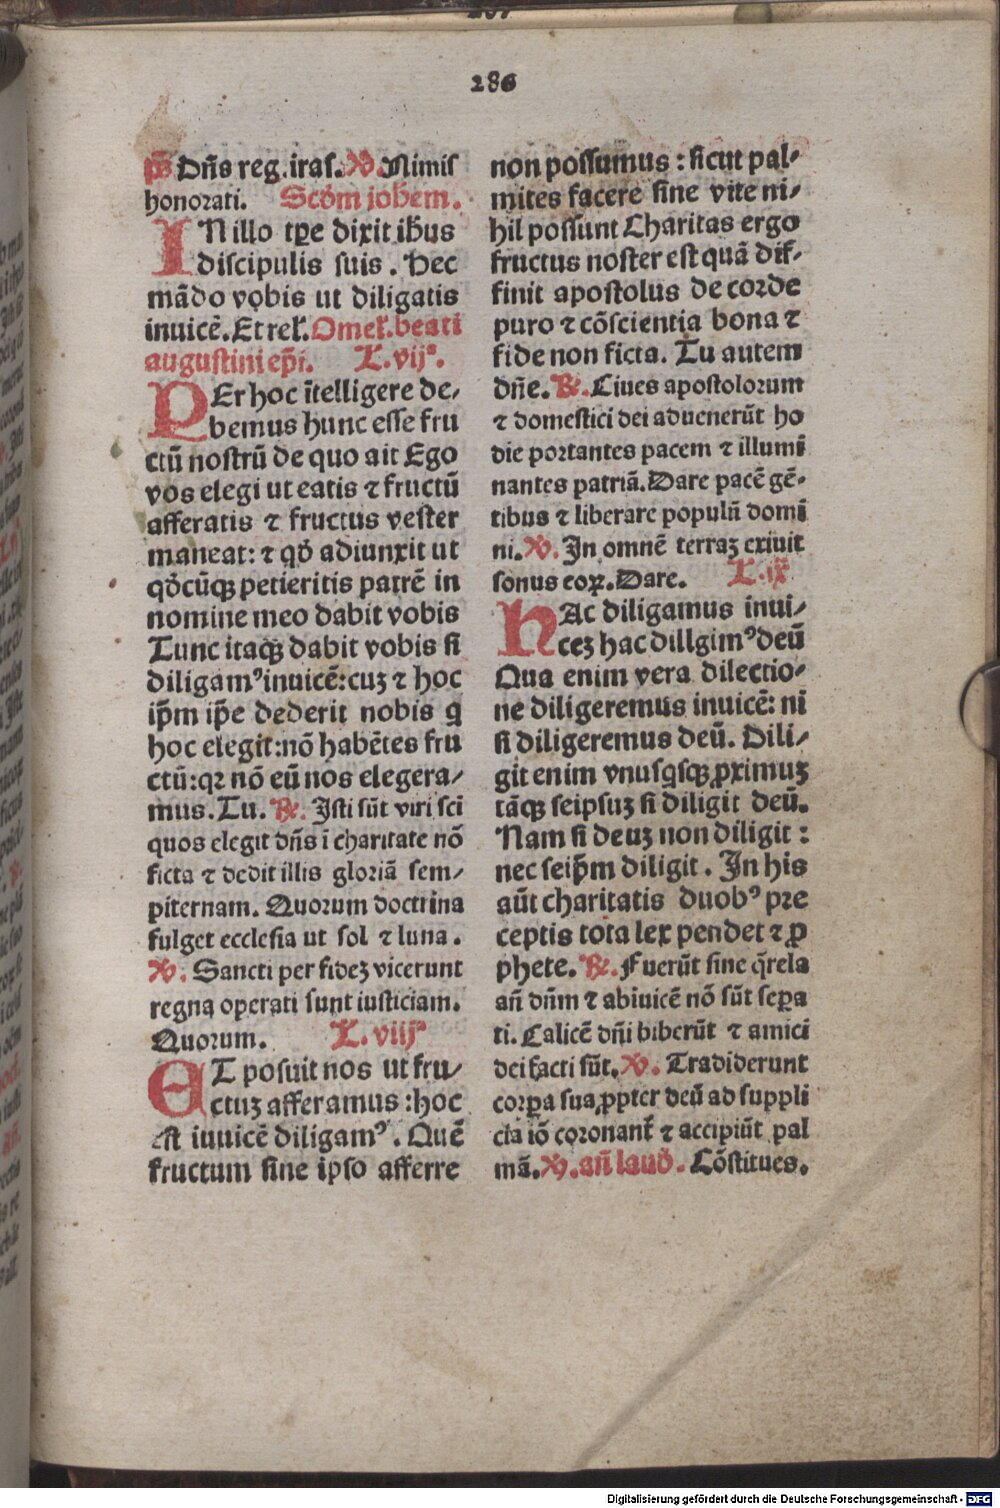 286
p̄s Dn̄s reg. iras. ℣. Nimis
honorati. Scdm̄ johēm.
IN illo tp̄e dixit ihus
discipulis suis. Hec
mādo vobis ut diligatis
inuicē. Et rel̄. Omel̄. beati
augustini ep̄i. L. vijª.
PEr hoc ītelligere de⸗
bemus hunc esse fru
ctū nostrū de quo ait Ego
vos elegi ut eatis ⁊ fructū
afferatis ⁊ fructus vester
maneat: ⁊ qd̄ adiunxit ut
qd̄cūqꝫ petieritis patrē in
nomine meo dabit vobis
Tunc itaqꝫ dabit vobis si
diligamꝰ inuicē: cuꝫ ⁊ hoc
ip̄m ip̄e dederit nobis q̄
hoc elegit: nō habētes fru
ctū: qꝛ nō eū nos elegera⸗
mus. Tu. ℟. Isti sūt viri sc̄i
quos elegit dn̄s ī charitate nō
ficta ⁊ dedit illis gloriā sem⸗
piternam. Quorum doctrina
fulget ecclesia ut sol ⁊ luna.
℣. Sancti per fideꝫ vicerunt
regna operati sunt iusticiam.
Quorum. L. viijª
ET posuit nos ut fru⸗
ctuꝫ afferamus: hoc
est iuuicē diligamꝰ. Quē
fructum sine ipso afferre
non possumus: sicut pal⸗
mites facere sine vite ni⸗
hil possunt Charitas ergo
fructus noster est quā dif⸗
finit apostolus de corde
puro ⁊ cōscientia bona ⁊
fide non ficta. Tu autem
dn̄e. ℟. Ciues apostolorum
⁊ domestici dei aduenerūt ho
die portantes pacem ⁊ illumi
nantes patriā. Dare pacē gē⸗
tibus ⁊ liberare populū domī
ni. ℣. In omnē terraꝫ exiuit
sonus eoꝝ. Dare. L. ixª
HAc diligamus inui⸗
ceꝫ hac dillgimꝰ deū
Qua enim vera dilectio⸗
ne diligeremus inuicē: ni
si diligeremus deū. Dili⸗
git enim vnusq̄sqꝫ ꝓximuꝫ
tāqꝫ seipsuꝫ si diligit deū.
Nam si deuꝫ non diligit:
nec seip̄m diligit. In his
aūt charitatis duobꝰ pre
ceptis tota lex pendet ⁊ ꝓ
phete. ℟. Fuerūt sine q̄rela
an̄ dn̄m ⁊ abīuicē nō sūt seꝑa
ti. Calicē dn̄i biberūt ⁊ amici
dei facti sūt. ℣. Tradiderunt
corꝑa sua ꝓpter deū ad suppli
cia iō coronant̄ ⁊ accipiūt pal
mā. ℣. an̄ laud̄. Cōstitues.
Digitalisierung gefördert durch die Deutsche Forschungsgemeinschaft - DFG